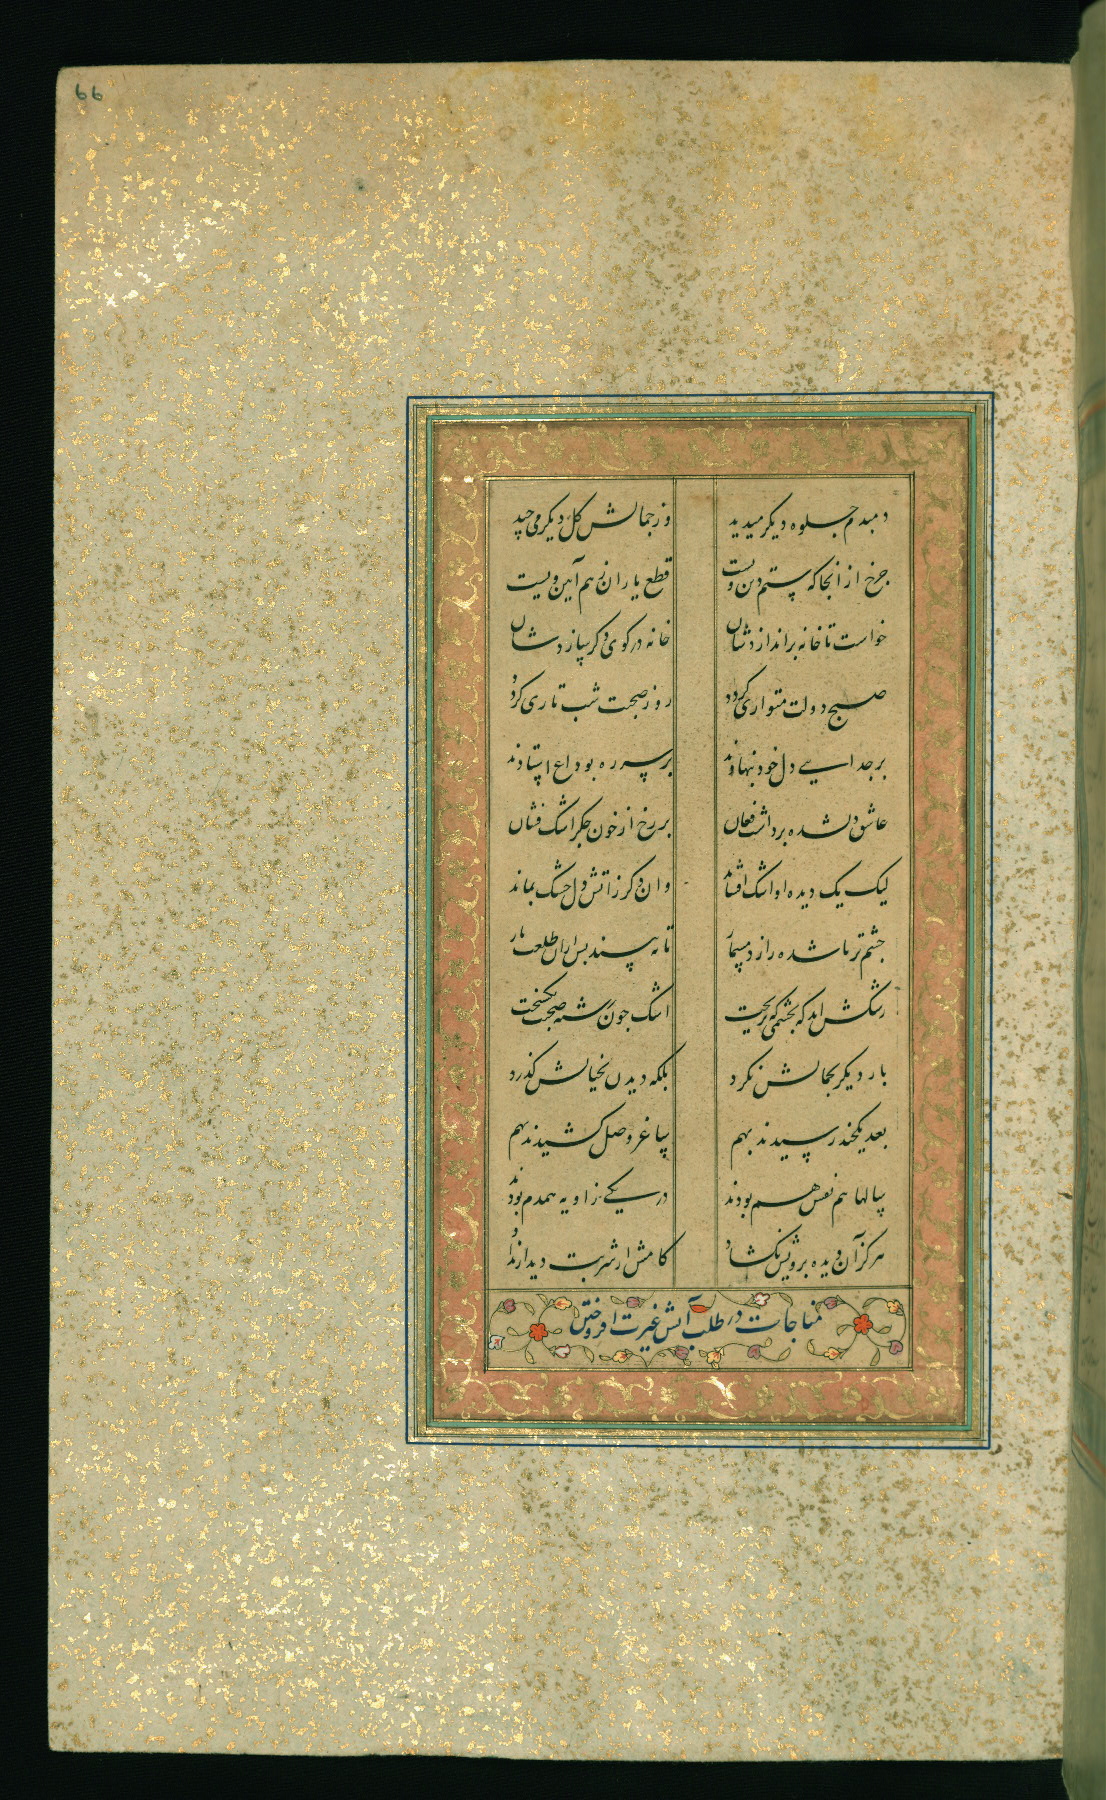 66
دمبدم جلوه دیکر میدید وز جمالش کل دیکر می چید
چرخ از انجا که ستم دین ویست قطع یاران ز هم آیین ویست
خواست تا خانه براندازدشان خانه در کوی دکر سازدشان
صبح دولت متواری کردد روز صحبت شب تاری کردد
بر جدایی دل خود بنهادند بر سر ره بوداع استادند
عاشق دلشده برداشت فغان بر رخ از خون جکر اشک فشان
لیک یک دیده او اشک افشاند وان دکر ز اتش دل خشک بماند
چشم تر ناشده را زد مسمار تا نه بیند پس از ان طلعت یار
رشکش امد که بچشمی که نریخت اشک چون رشته صحبت بکسیخت
بار دیکر بجمالش نکرد بلکه دیدن بخیالش کذرد
بعد یکچند رسیدند بهم ساغر وصل کشیدند بهم
سالها هم نفس هم بودند در یکی زاویه همدم بودند
هرکز آن دیده برویش نکشاد کامش از شربت دیدار نداد
مناجات در طلب آتش غیرت افروختن